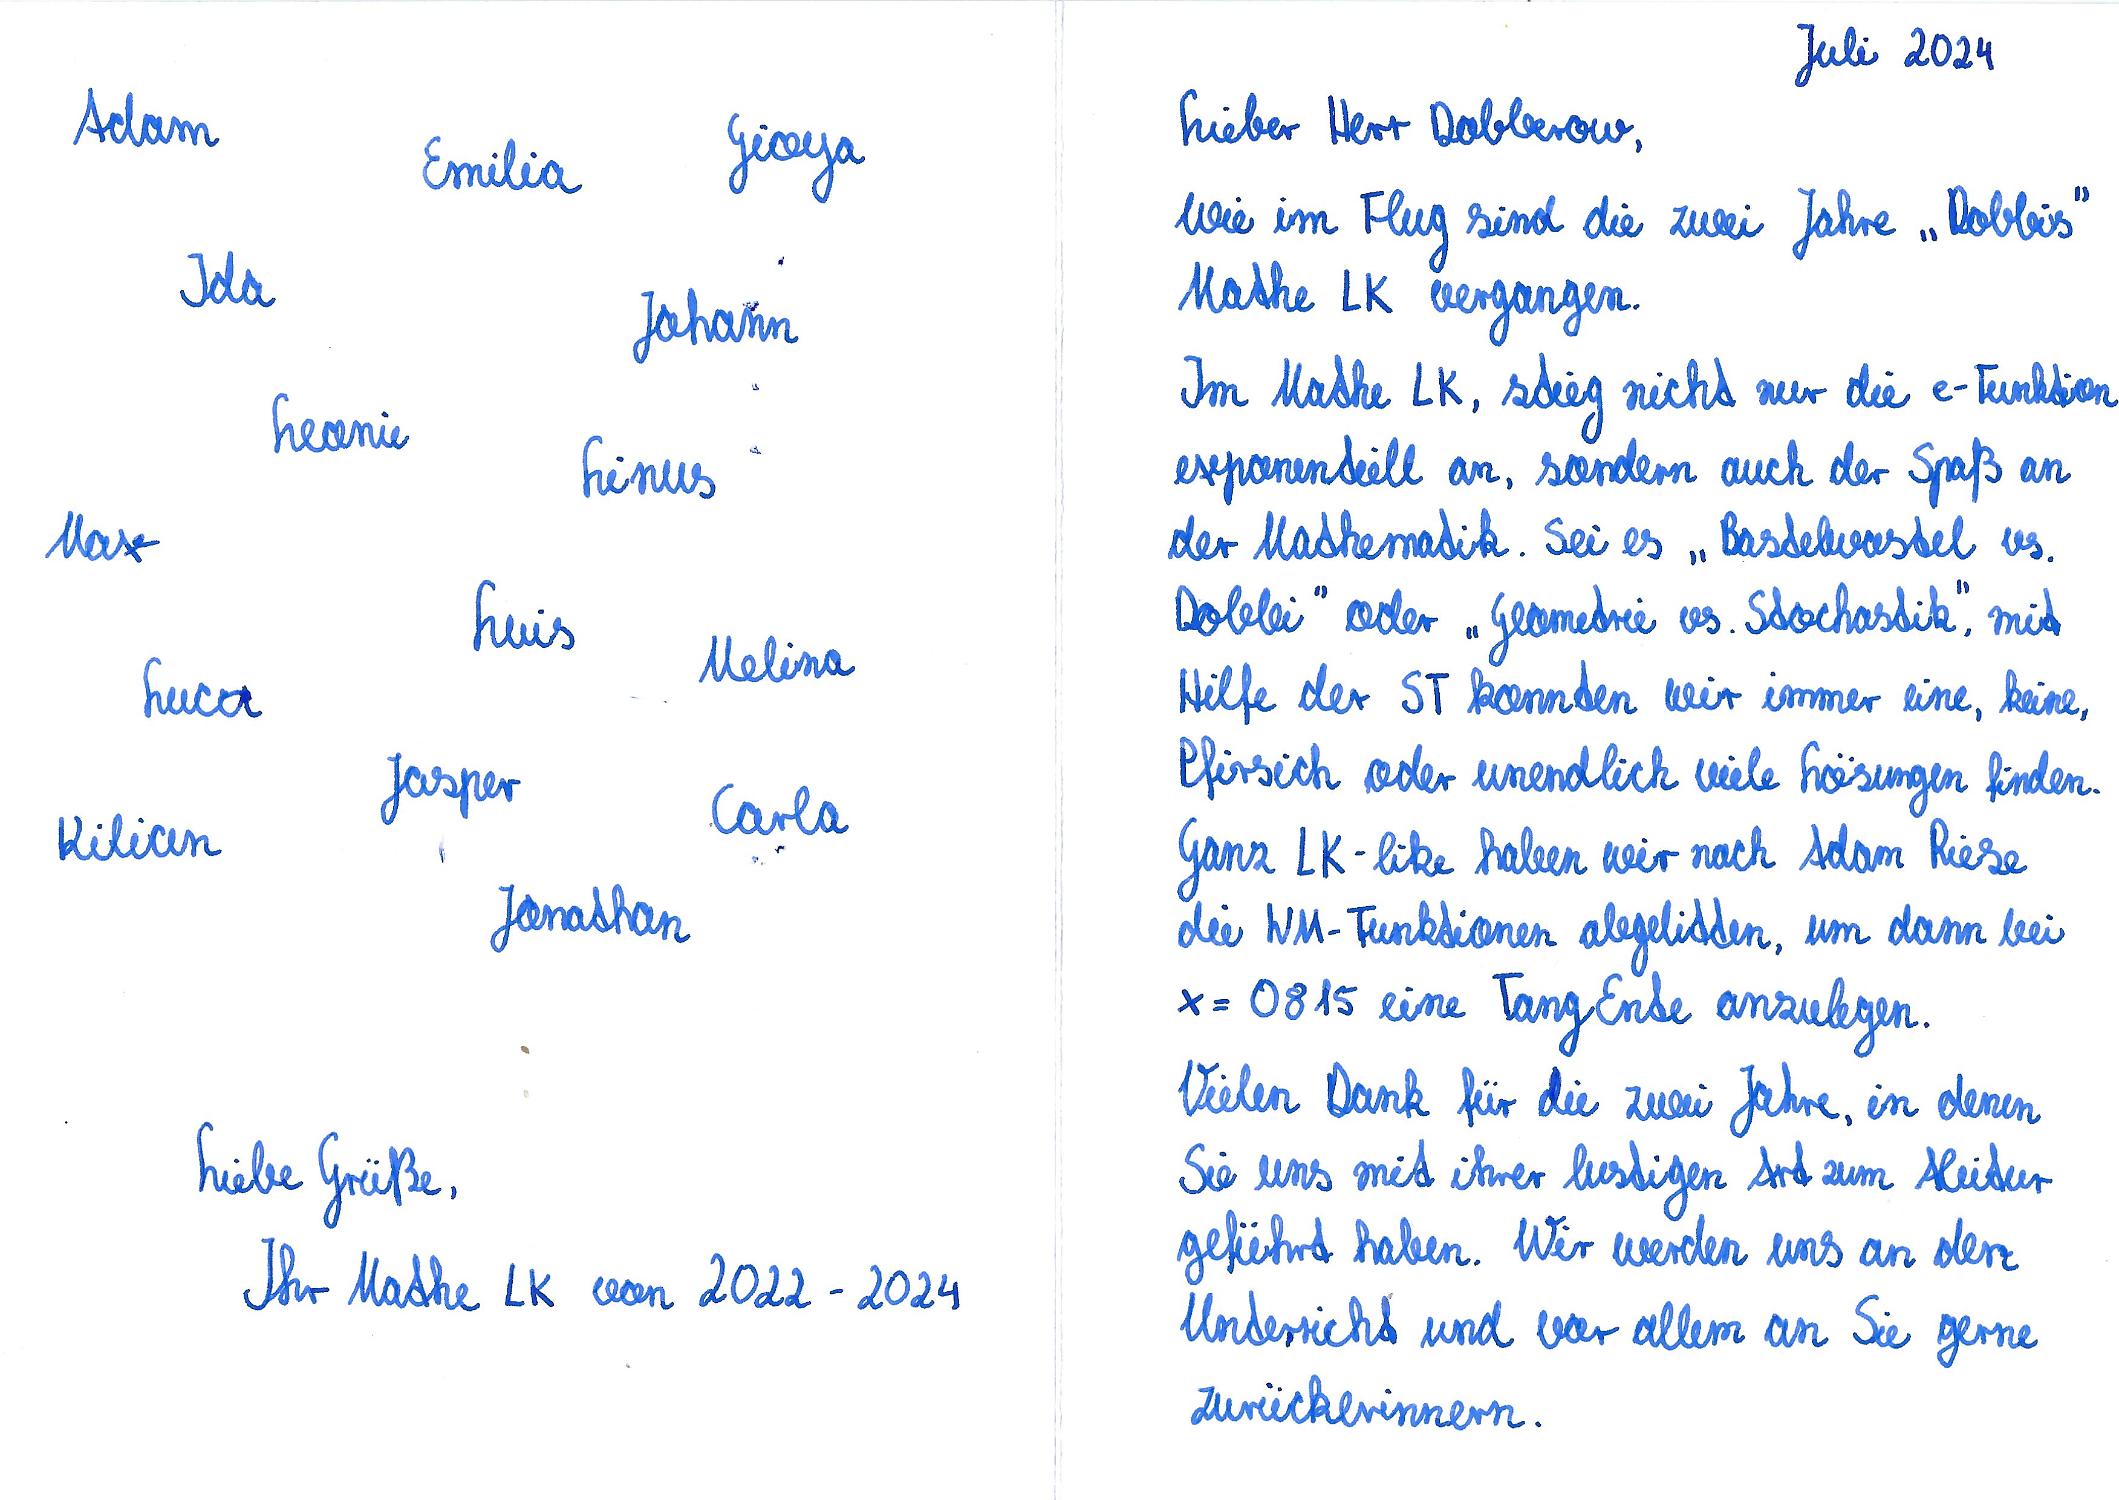 Juli 2024
Lieber Herr Dobberow,
wie im Flug sind die zwei Jahre „Dobbis"
Mathe LK vergangen.
Im Mathe LK, stieg nicht nur die e-Funktion
exponentiell an, sondern auch der Spaß an
der Mathematik. Sei es „Bastelwastel vs.
Dobbi" oder „Geometrie vs. Stochastik", mit
Hilfe der ST konnten wir immer eine, keine,
Pfirsich oder unendlich viele Lösungen finden.
Ganz LK-like haben wir nach Adam Riese
die WM-Funktionen abgelitten, um dann bei
x = 0815 eine TangEnte anzulegen.
Vielen Dank für die zwei Jahre, in denen
Sie uns mit ihrer lustigen Art zum Abitur
geführt haben. Wir werden uns an den
Unterricht und vor allem an Sie gerne
zurückerinnern.
Adam
Emilia
Gioya
Ida
Johann
Leonie
Linus
Max
Luis
Melina
Luca
Jasper
Carla
Kilian
Jonathan
Liebe Grüße,
Ihr Mathe LK von 2022 - 2024